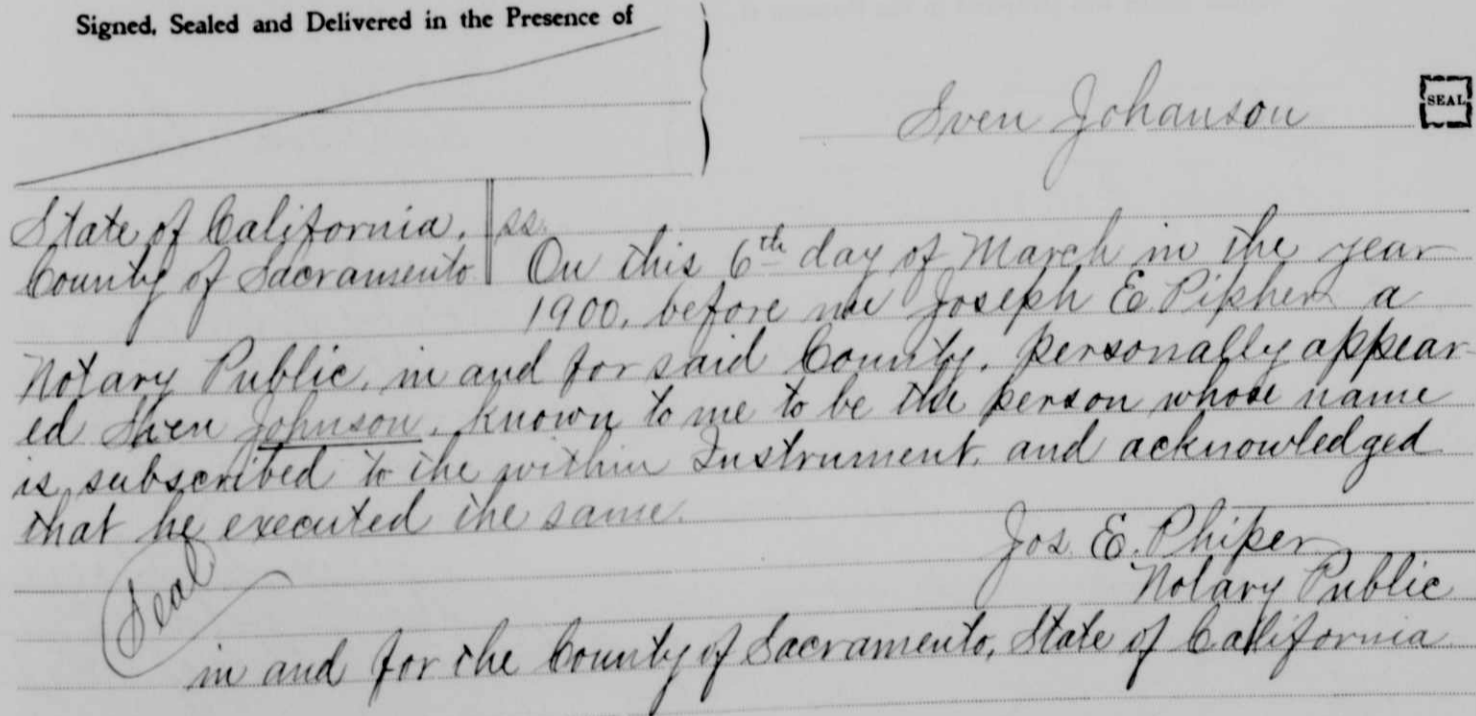 Signed, Sealed and Delivered in the Presence of
Sven Johanson
SEAL
State of California, ss.
County of Sacramento On this 6th day of March in the year
1900, before me Joseph E. Pipher a
Notary Public, in and for said County, personally appear-
ed Sven Johnson, known to me to be the person whose name
is subscribed to the within Instrument, and acknowledged
that he executed the same.
Jos. E. Phiper
(Seal) Notary Public
in and for the County of Sacramento, State of California